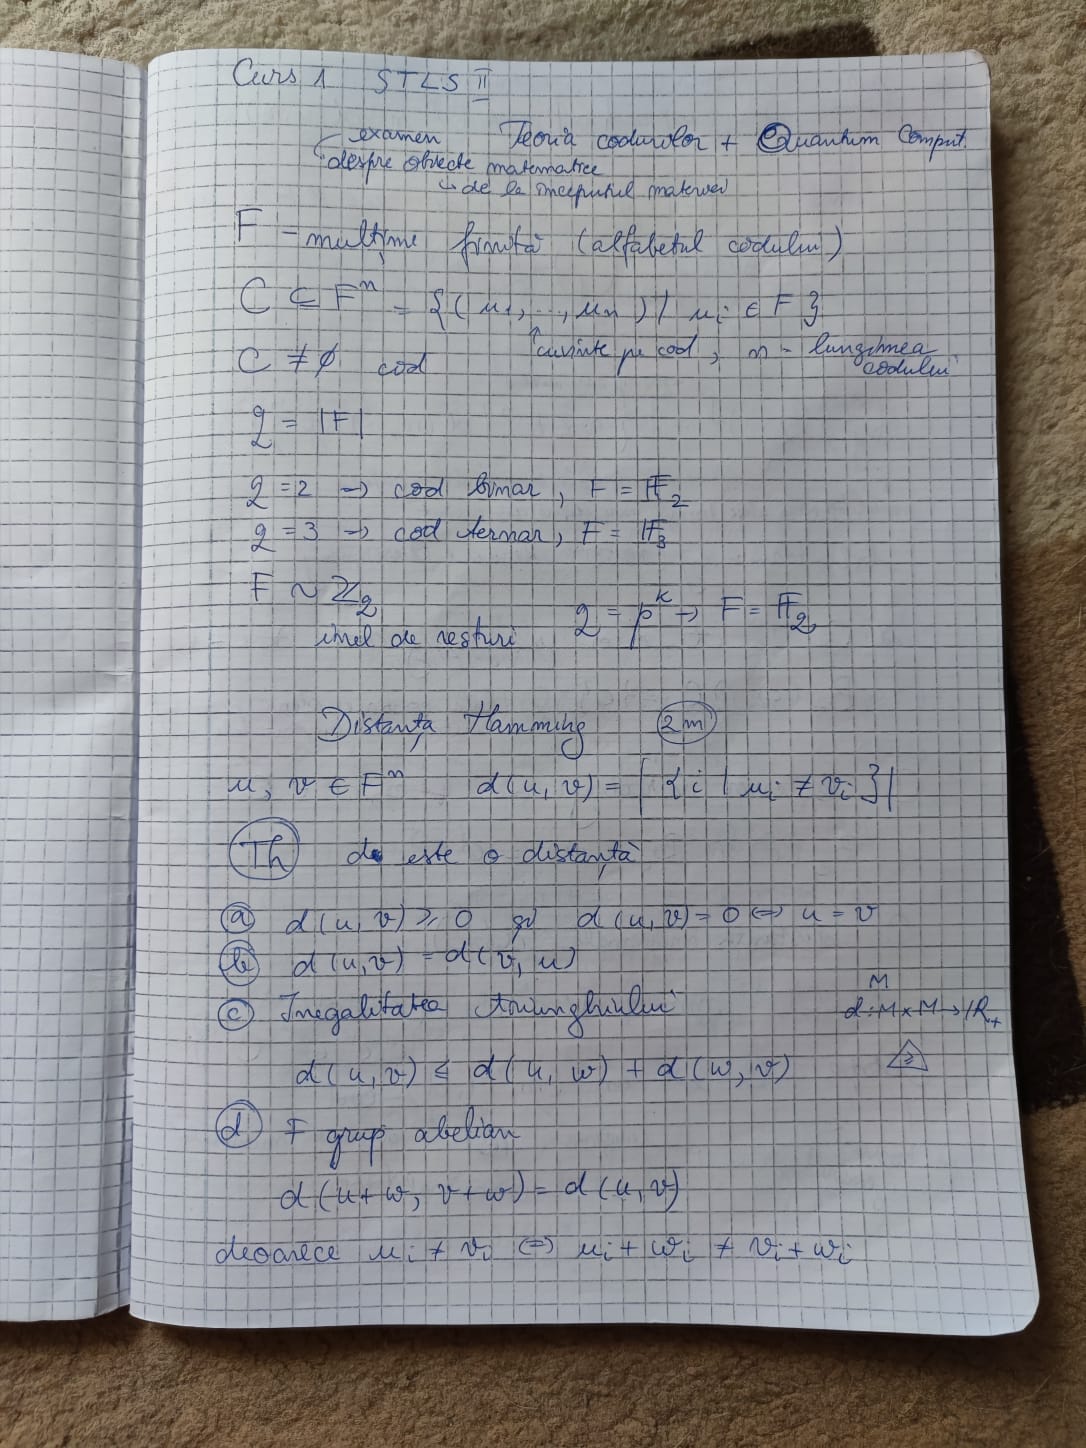 Curs 1 STLS II
examen Teoria codurilor + Quantum Comput.
despre obiecte matematice
↳ de la începutul materiei
F - mulțime finită (alfabetul codului)
C ⊆ Fⁿ = {(u₁, ..., uₙ) | uᵢ ∈ F}
C ≠ ∅ cod ↑ cuvinte pe cod, n - lungimea codului
q = |F|
q = 2 → cod binar, F = 𝔽₂
q = 3 → cod ternar, F = 𝔽₃
F ~ ℤq
inel de resturi q = pᵏ → F = 𝔽q
Distanța Hamming 2m
u, v ∈ Fⁿ d(u, v) = |{i | uᵢ ≠ vᵢ}|
Th d este o distanță
a) d(u, v) ≥ 0 și d(u, v) = 0 ⇔ u = v
b) d(u, v) = d(v, u)
c) Inegalitatea triunghiului
M
d: M × M → ℝ₊
d(u, v) ≤ d(u, w) + d(w, v) ≥
d) F grup abelian
d(u+w, v+w) = d(u, v)
deoarece uᵢ ≠ vᵢ ⇔ uᵢ + wᵢ ≠ vᵢ + wᵢ